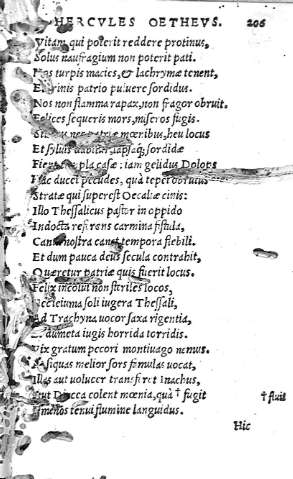 HERCVLES OETHEVS. 206
Vitam qui poterit reddere protinus,
Solus naufragium non poterit pati.
Nos turpis macies, & lachrymæ tenent,
Et crinis patrio puluere sordidus.
Nos non flamma rapax, non fragor obruit.
Felices sequeris mors, miseros fugis.
mœribus, heu locus
Et syluis dabitur, lapsaq; sordidæ
Fient casæ: iam gelidus Dolops
Hac ducet pecudes, quà tepet obrutus
Stratæ qui superest Oecaliæ cinis:
Illo Thessalicus pastor in oppido
Indocta referens carmina fistula,
Cantu nostra canet tempora flebili.
Et dum pauca deus secula contrahit,
Quæretur patriæ quis fuerit locus.
Felix incolui non steriles locos,
Nec ieiuna soli iugera Thessali,
Ad Trachyna uocor saxa rigentia,
Et dumeta iugis horrida torridis.
Vix gratum pecori montiuago nemus.
At siquas melior sors famulas uocat,
Illas aut uolucer transferet Inachus,
Aut Dircæa colent mœnia, quà † fugit † fluit
Ismenos tenui flumine languidus.
Hic